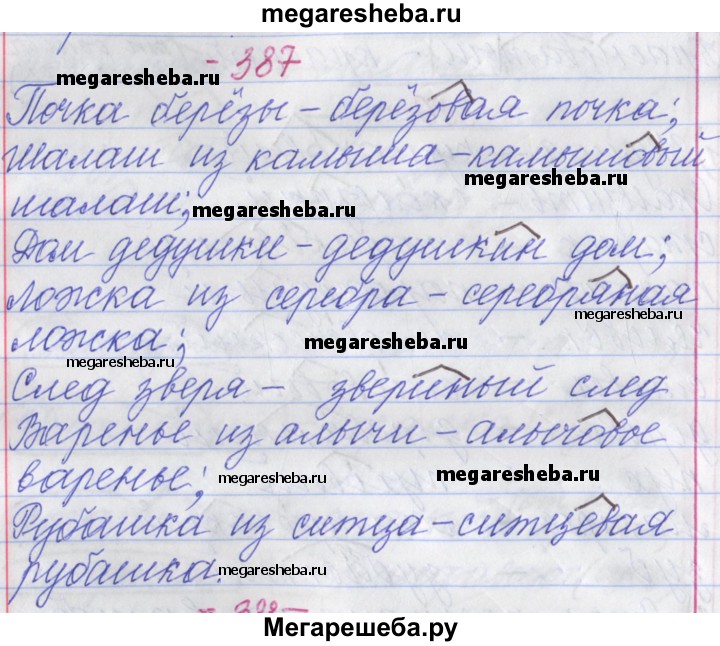 megaresheba.ru
- 387
megaresheba.ru
Почка берёзы – берёзовая почка;
Шалаш из камыша – камышовый
megaresheba.ru
шалаш; megaresheba.ru
Дом дедушки – дедушкин дом;
Ложка из серебра – серебряная
megaresheba.ru
ложка; megaresheba.ru
megaresheba.ru
След зверя – звериный след
Варенье из алычи – алычовое
варенье; megaresheba.ru megaresheba.ru
Рубашка из ситца – ситцевая
рубашка. megaresheba.ru
Мегарешеба.ру